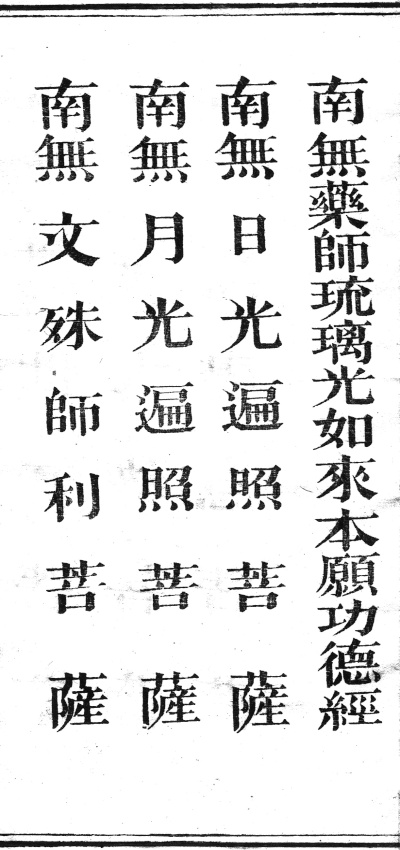 南無藥師琉璃光如來本願功德經
南無日光遍照菩薩
南無月光遍照菩薩
南無文殊師利菩薩